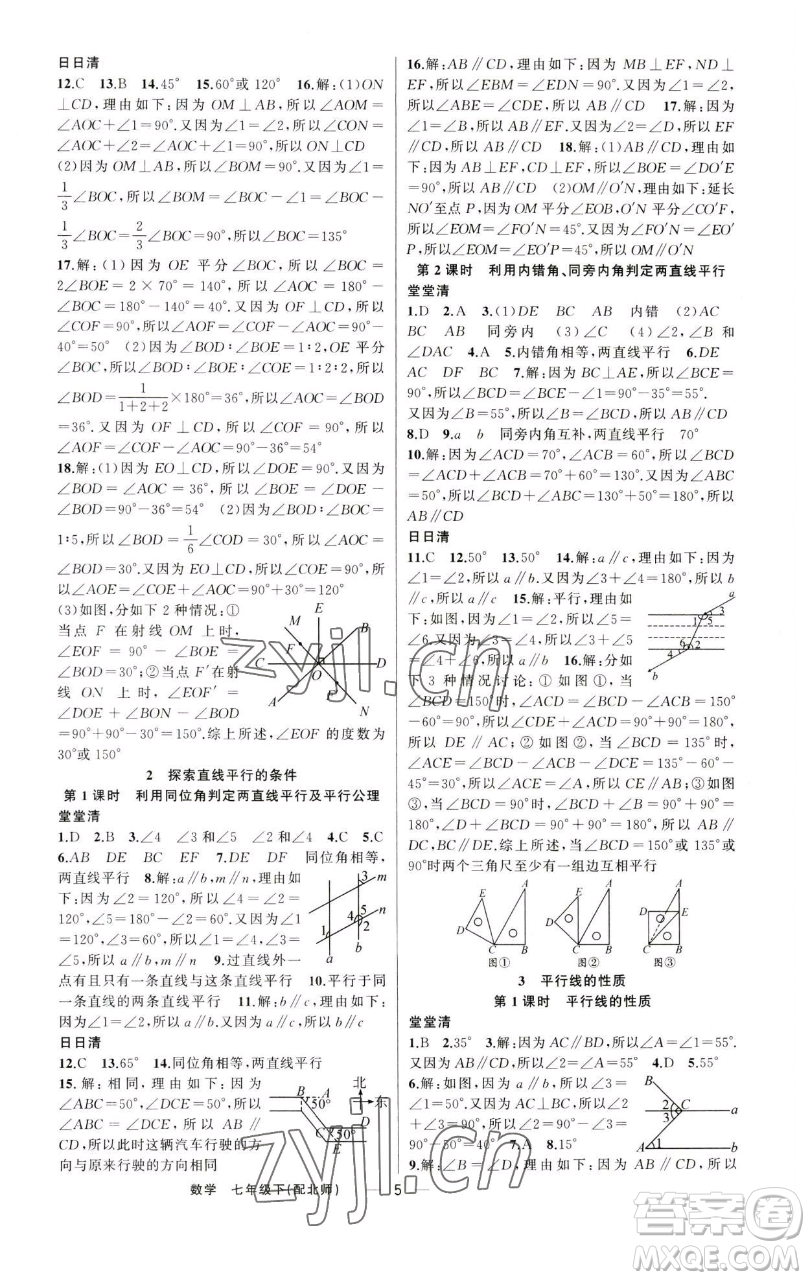 日日清
12.C 13.B 14.45° 15.60°或120° 16.解:(1)ON
⊥CD,理由如下:因为OM⊥AB,所以∠AOM=
∠AOC+∠1=90°.又因为∠1=∠2,所以∠CON=
∠AOC+∠2=∠AOC+∠1=90°,所以ON⊥CD
(2)因为OM⊥AB,所以∠BOM=90°.因为∠1=
1/3∠BOC,所以∠BOM=∠BOC-∠1=∠BOC-
1/3∠BOC=2/3∠BOC=90°,所以∠BOC=135°
17.解:(1)因为OE平分∠BOC,所以∠BOC=
2∠BOE=2×70°=140°,所以∠AOC=180°-
∠BOC=180°-140°=40°.因为OF⊥CD,所以
∠COF=90°,所以∠AOF=∠COF-∠AOC=90°-
40°=50° (2)因为∠BOD:∠BOE=1:2,OE平分
∠BOC,所以∠BOD:∠BOE:∠EOC=1:2:2,所以
∠BOD=1/(1+2+2)×180°=36°,所以∠AOC=∠BOD
=36°.又因为OF⊥CD,所以∠COF=90°,所以
∠AOF=∠COF-∠AOC=90°-36°=54°
18.解:(1)因为EO⊥CD,所以∠DOE=90°.又因为
∠BOD=∠AOC=36°,所以∠BOE=∠DOE-
∠BOD=90°-36°=54° (2)因为∠BOD:∠BOC=
1:5,所以∠BOD=1/6∠COD=30°,所以∠AOC=
∠BOD=30°.又因为EO⊥CD,所以∠COE=90°,所
以∠AOE=∠COE+∠AOC=90°+30°=120°
(3)如图,分如下2种情况:①
当点F在射线OM上时,
∠EOF=90°-∠BOE=
∠BOD=30°;②当点F′在射
线ON上时,∠EOF′=
∠DOE+∠BON-∠BOD
=90°+90°-30°=150°.综上所述,∠EOF的度数为
30°或150°
2 探索直线平行的条件
第1课时 利用同位角判定两直线平行及平行公理
堂堂清
1.D 2.B 3.∠4 ∠3和∠5 ∠2和∠5 4.C 5.C
6.AB DE BC EF 7.DE DF 同位角相等,
两直线平行 8.解:a∥b,m∥n,理由
如下:因为∠2=120°,所以∠4=∠2=
120°,∠5=180°-∠2=60°.因为∠1=
120°,∠3=60°,所以∠1=∠4,∠3=
∠5,所以a∥b,m∥n 9.过直线外一
点有且只有一条直线与这条直线平行 10.平行于同
一条直线的两条直线平行 11.解:a∥c,理由如下:
因为∠1=∠2,所以a∥b.又因为b∥c,所以a∥c
日日清
12.C 13.65° 14.同位角相等,两直线平行
15.解:相同,理由如下:因为
∠ABC=50°,∠DCE=50°,所以
∠ABC=∠DCE,所以AB∥CD,
所以此时这辆汽车行驶的方
向与原来行驶的方向相同
16.解:AB∥CD,理由如下:因为MB⊥EF,ND⊥
EF,所以∠EBM=∠EDN=90°.又因为∠1=∠2,所
以∠ABE=∠CDE,所以AB∥CD 17.解:因为
∠1=∠B,所以EF∥AB.又因为∠2=∠D,所以EF
∥CD,所以AB∥CD 18.解:(1)AB∥CD,理由如
下:因为∠BOE=90°,∠DO′E=90°,所以∠BOE=∠DO′E
=90°,所以AB∥CD (2)OM∥O′N,理由如下:延长
NO′至点P,因为OM平分∠EOB,O′N平分∠CO′F,
所以∠EOM=45°,∠FO′N=45°.又因为∠EO′P=
∠FO′N,所以∠EOM=∠EO′P,所以OM∥O′N
第2课时 利用内错角、同旁内角判定两直线平行
堂堂清
1.D 2.A 3.(1)DE BC AB 内错 (2)AC
BC AB 同旁内 (3)∠C (4)∠2,∠BAE和
∠DAC 4.A 5.内错角相等,两直线平行 6.DE
AC DF BC 7.解:因为BC⊥AE,所以∠BCE=
90°,所以∠BCD=∠BCE-∠1=90°-35°=55°.
又因为∠B=55°,所以∠B=∠BCD,所以AB∥CD
8.D 9.a b 同旁内角互补,两直线平行 70°
10.解:因为∠ACD=70°,∠ACB=60°,所以∠BCD
=∠ACD+∠ACB=70°+60°=130°.又因为∠ABC
=50°,所以∠BCD+∠ABC=130°+50°=180°,所以
AB∥CD
日日清
11.C 12.50° 13.50° 14.解:a∥c,理由如下:因为
∠1=∠2,所以a∥b.又因为∠3+∠4=180°,所以b
∥c,所以a∥c 15.解:a∥b,理由
如下:因为∠1=∠2,∠1=∠5,∠2=
∠6,所以∠5=∠6.又因为∠3=∠4,
所以∠3+∠5=
∠4+∠6,所以a∥b 16.解:分如
下3种情况讨论:①如图①,当
∠BCD=150°时,∠ACD=∠BCD-∠ACB=150°
-60°=90°,所以∠CDE+∠ACD=90°+90°=180°,
所以DE∥AC;②如图②,当∠BCD=135°时,
∠ACE=∠BCD-∠ACB-∠DCE=135°-60°-
45°=30°,所以∠ACE=∠A,所以AB∥CE;③如图
③,当∠BCD=90°时,因为∠B=∠D=∠BCD=
90°,所以∠D+∠BCD=90°+90°=180°,所以AB∥
DC,DE∥BC.综上所述,当∠BCD=150°或135°或
90°时两个三角尺至少有一组边互相平行
图① 图② 图③
3 平行线的性质
第1课时 平行线的性质
堂堂清
1.B 2.35° 3.解:因为AC∥BD,所以∠A=∠1=55°.
又因为AE∥BF,所以∠2=∠A=55° 4.D 5.55°
6.解:如图,因为a∥b,所以∠3=
∠1=50°.又因为AC⊥BC,所以
∠2+∠3=90°,所以∠2=90°-∠3=
90°-50°=40° 7.A 8.15°
9.解:因为∠1=∠2,所以AB∥CD,所以∠3+∠4=
数学 七年级下(配北师)
5
zyjl.cn
答案卷
MXQE.COM